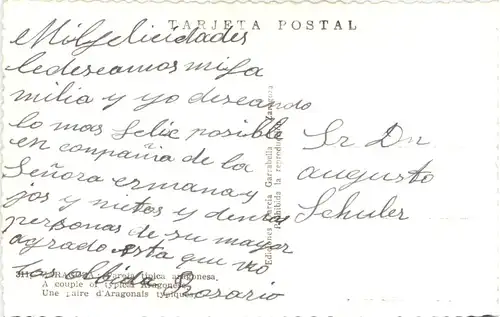 TARJETA POSTAL
Mil felicidades
le deseamos mi fa
milia y yo deseando
lo mas felic posible
en conpañia de la
Señora ermana y
jos y nietos y demas
personas de su mayor
agrado esta que no
los olbida Rosario
Sr Dn
augusto
Schuler
Ediciones García Garrabella Zaragoza
Prohibida la reproducción
Pareja típica aragonesa.
A couple of typical Aragonese.
Une paire d'Aragonais typiques.